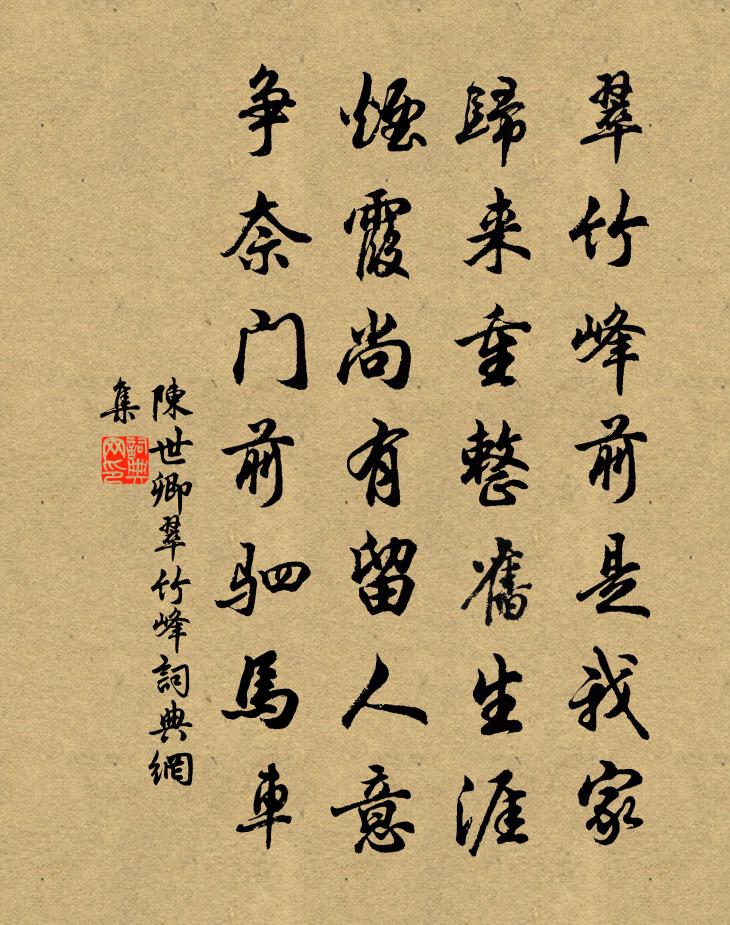 翠竹峰前是我家
歸来重整舊生涯
煙霞尚有留人意
争奈門前駟馬車
陳世卿翠竹峰詞典網
集
詞典
网印